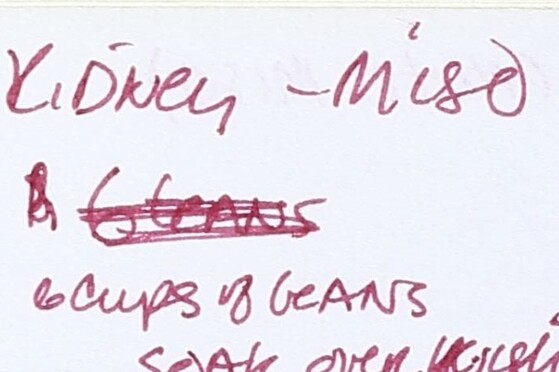 Kidney - Miso
6 beans
6 cups of beans
soak over